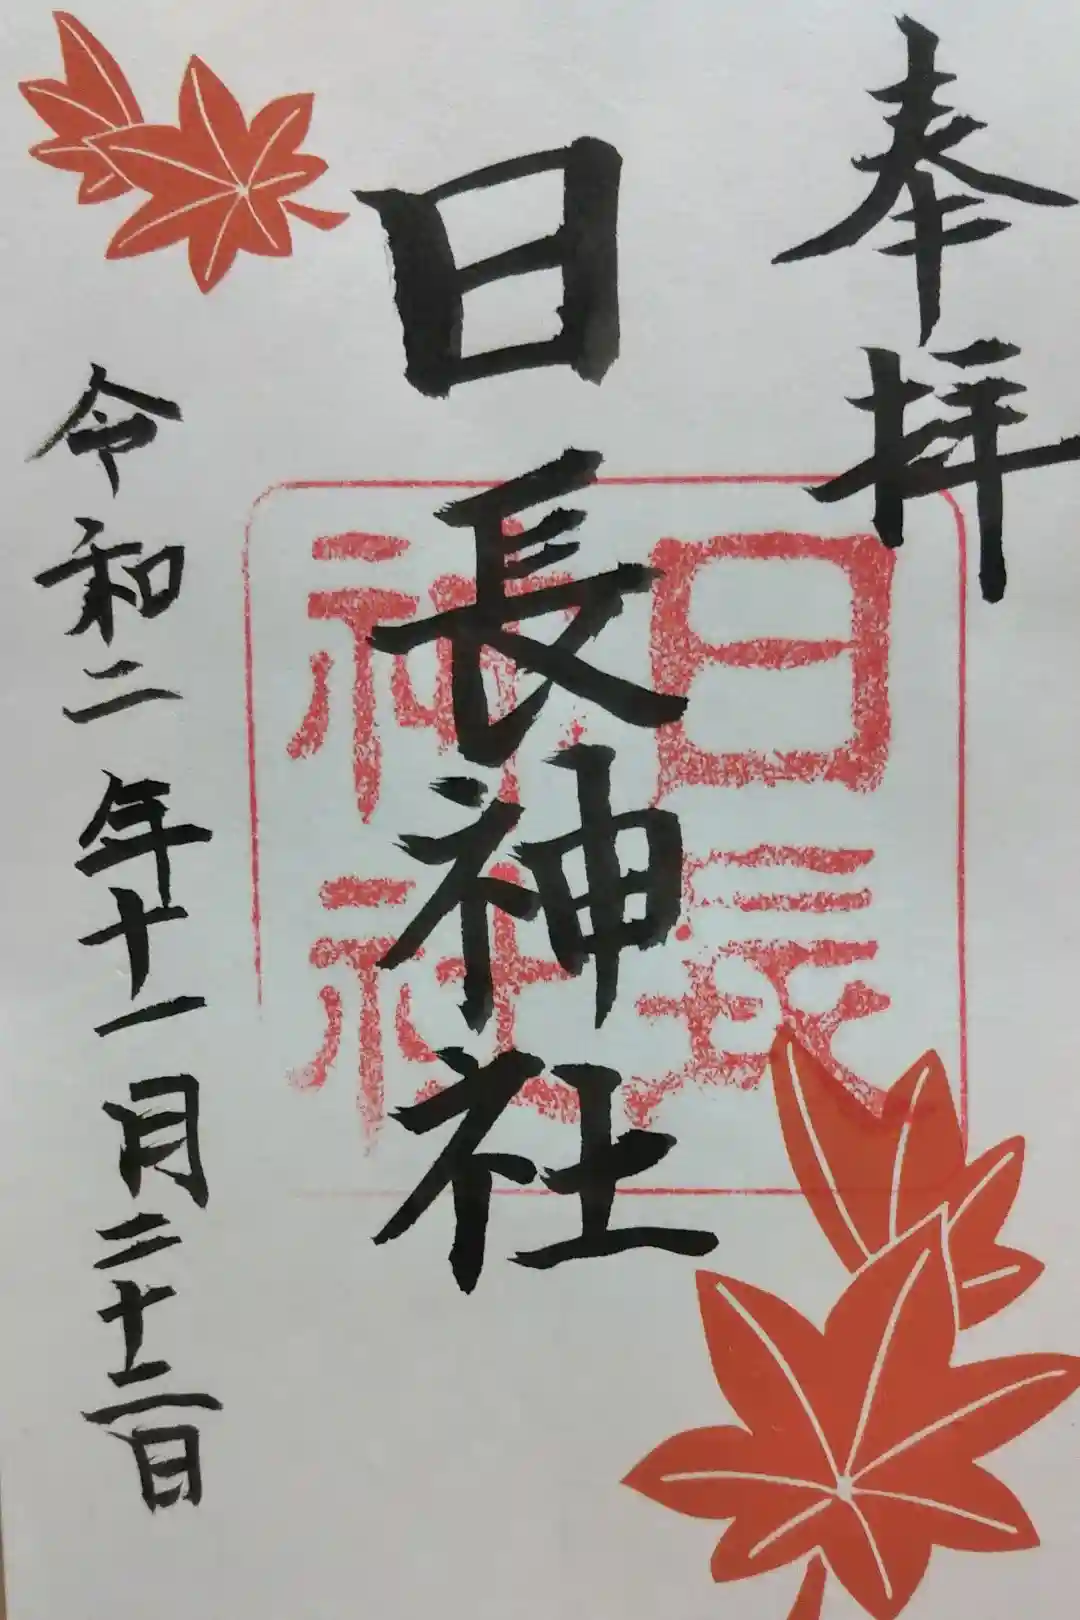 奉拝
日長神社
日長
神社
令和二年十一月二十二日